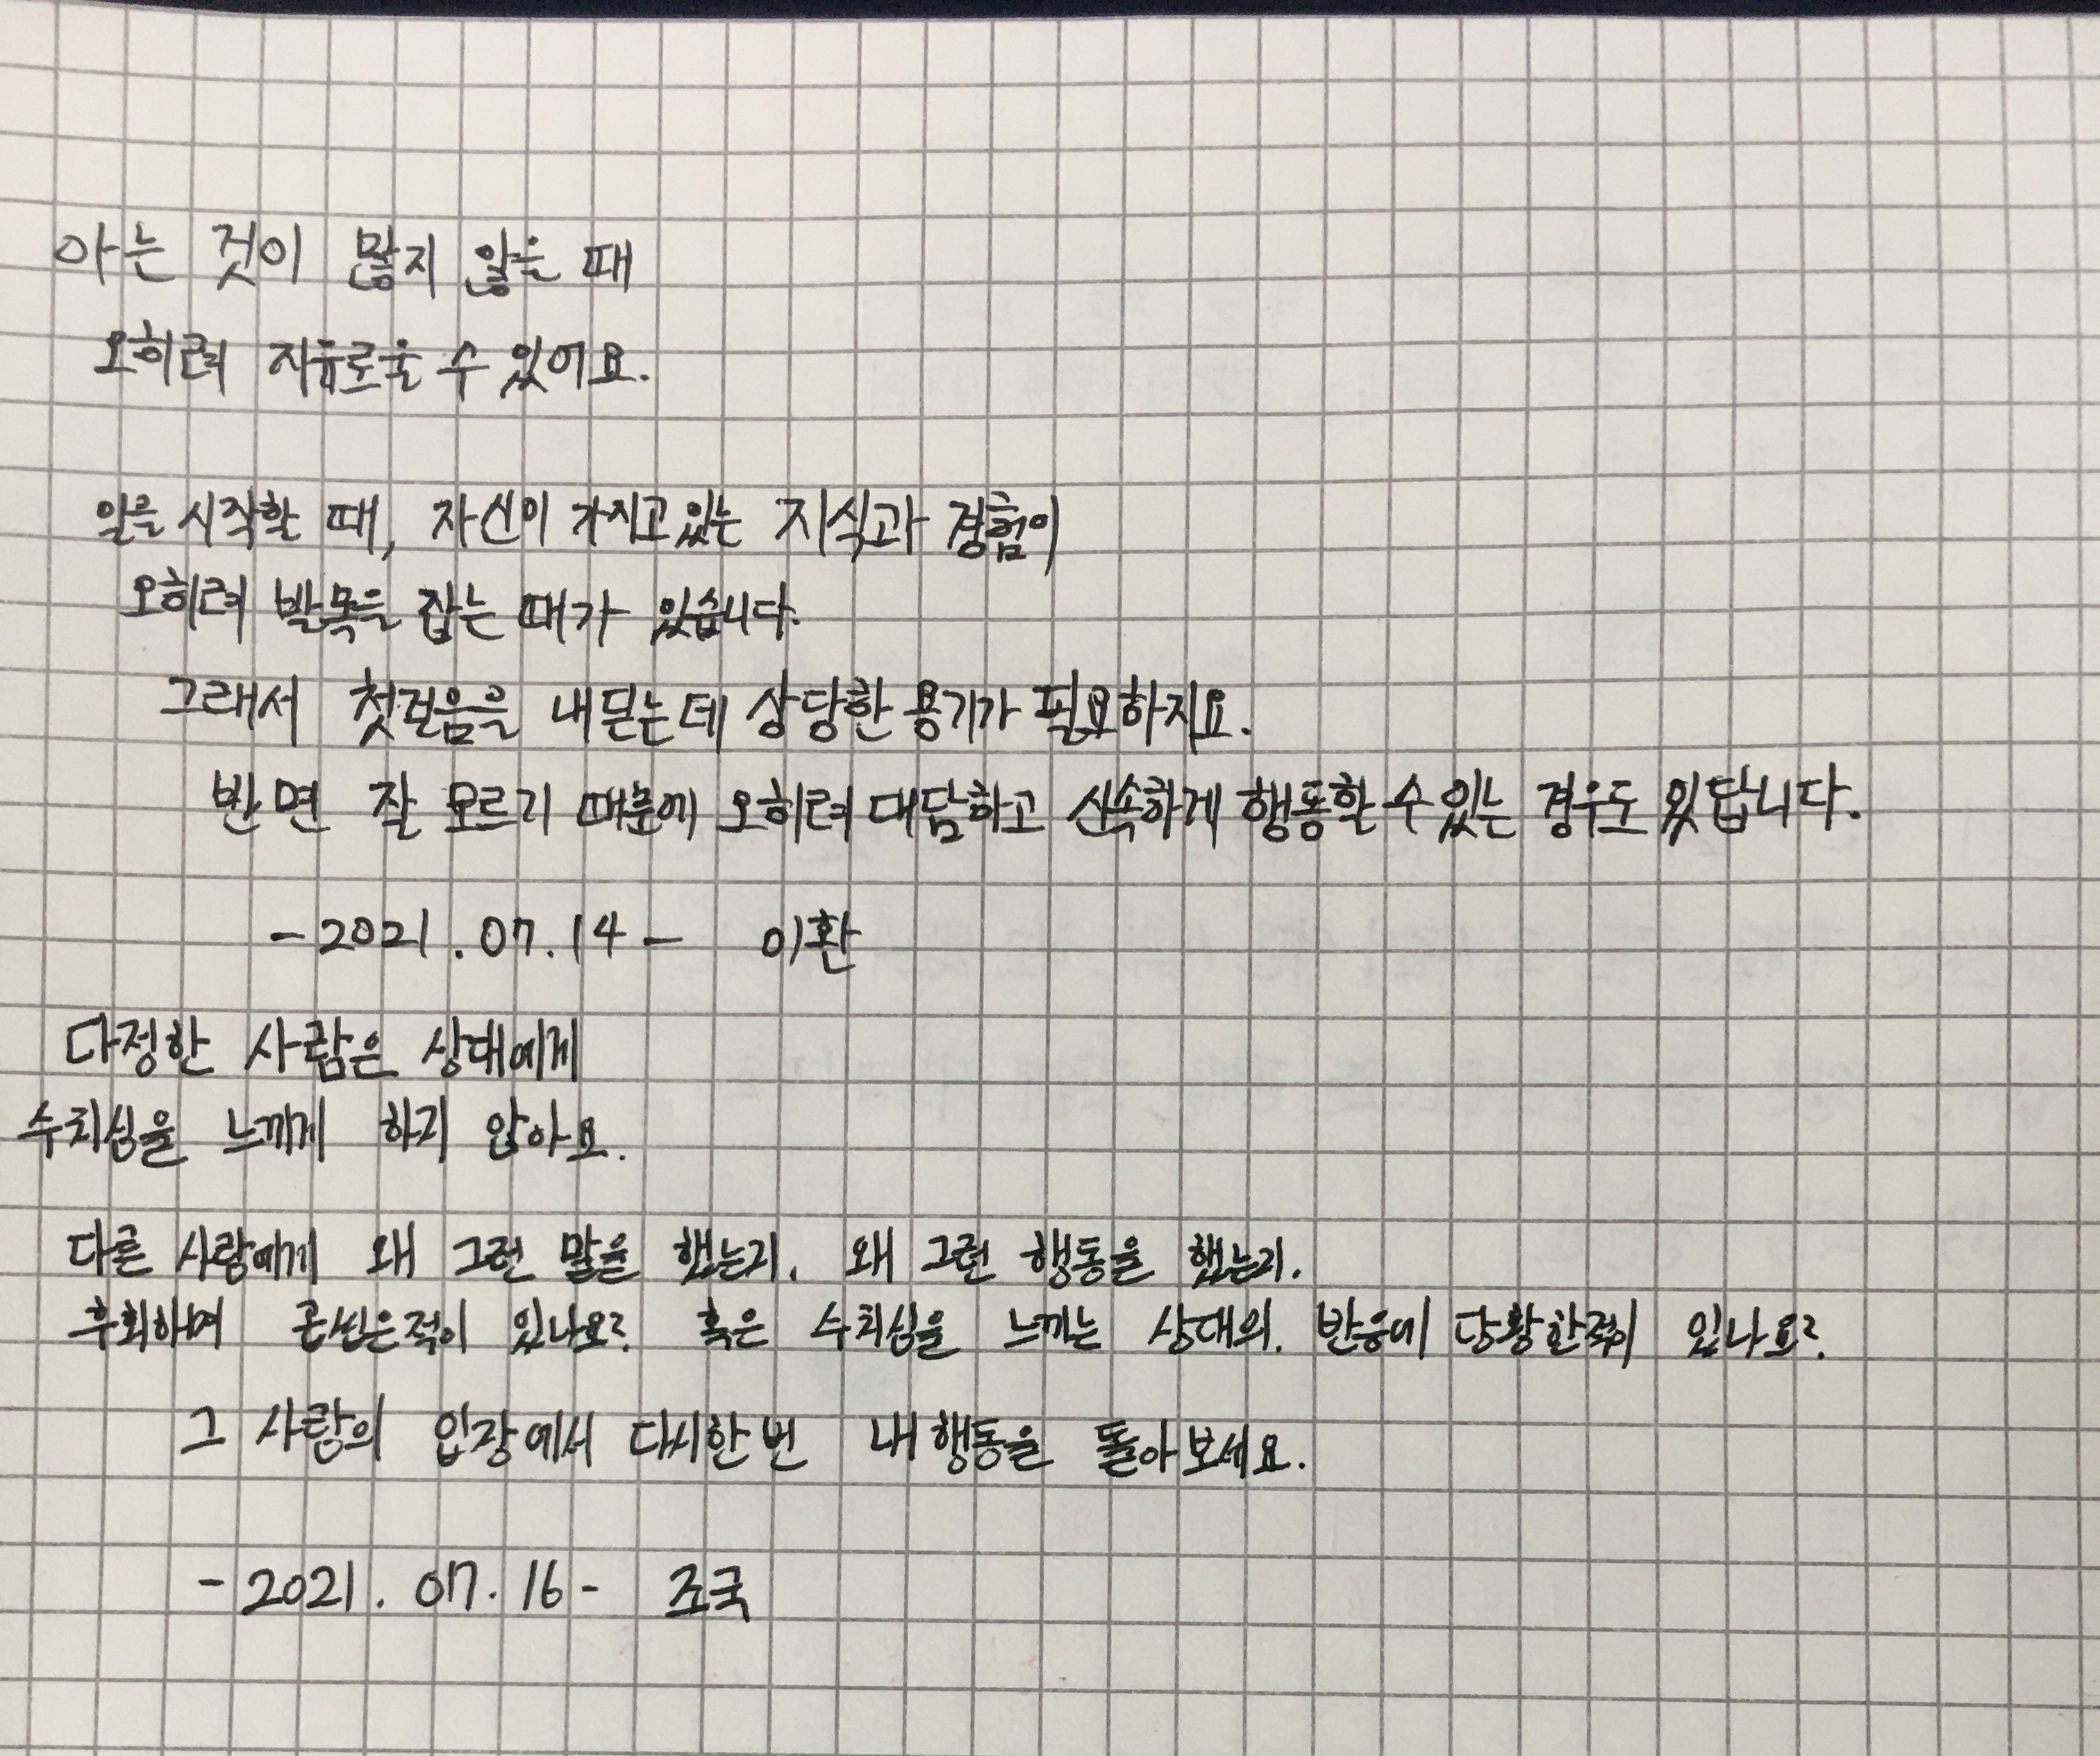 아는 것이 많지 않을 때
오히려 자유로울 수 있어요.
일을 시작할 때, 자신이 가지고 있는 지식과 경험이
오히려 발목을 잡는 때가 있습니다.
그래서 첫걸음을 내딛는데 상당한 용기가 필요하지요.
반면 잘 모르기 때문에 오히려 대담하고 신속하게 행동할 수 있는 경우도 있답니다.
-2021.07.14- 이환
다정한 사람은 상대에게
수치심을 느끼게 하지 않아요.
다른 사람에게 왜 그런 말을 했는지. 왜 그런 행동을 했는지.
후회하며 곱씹은적이 있나요? 혹은 수치심을 느끼는 상대의. 반응에 당황한적이 있나요?
그 사람의 입장에서 다시한번 내 행동을 돌아보세요.
-2021.07.16- 조국